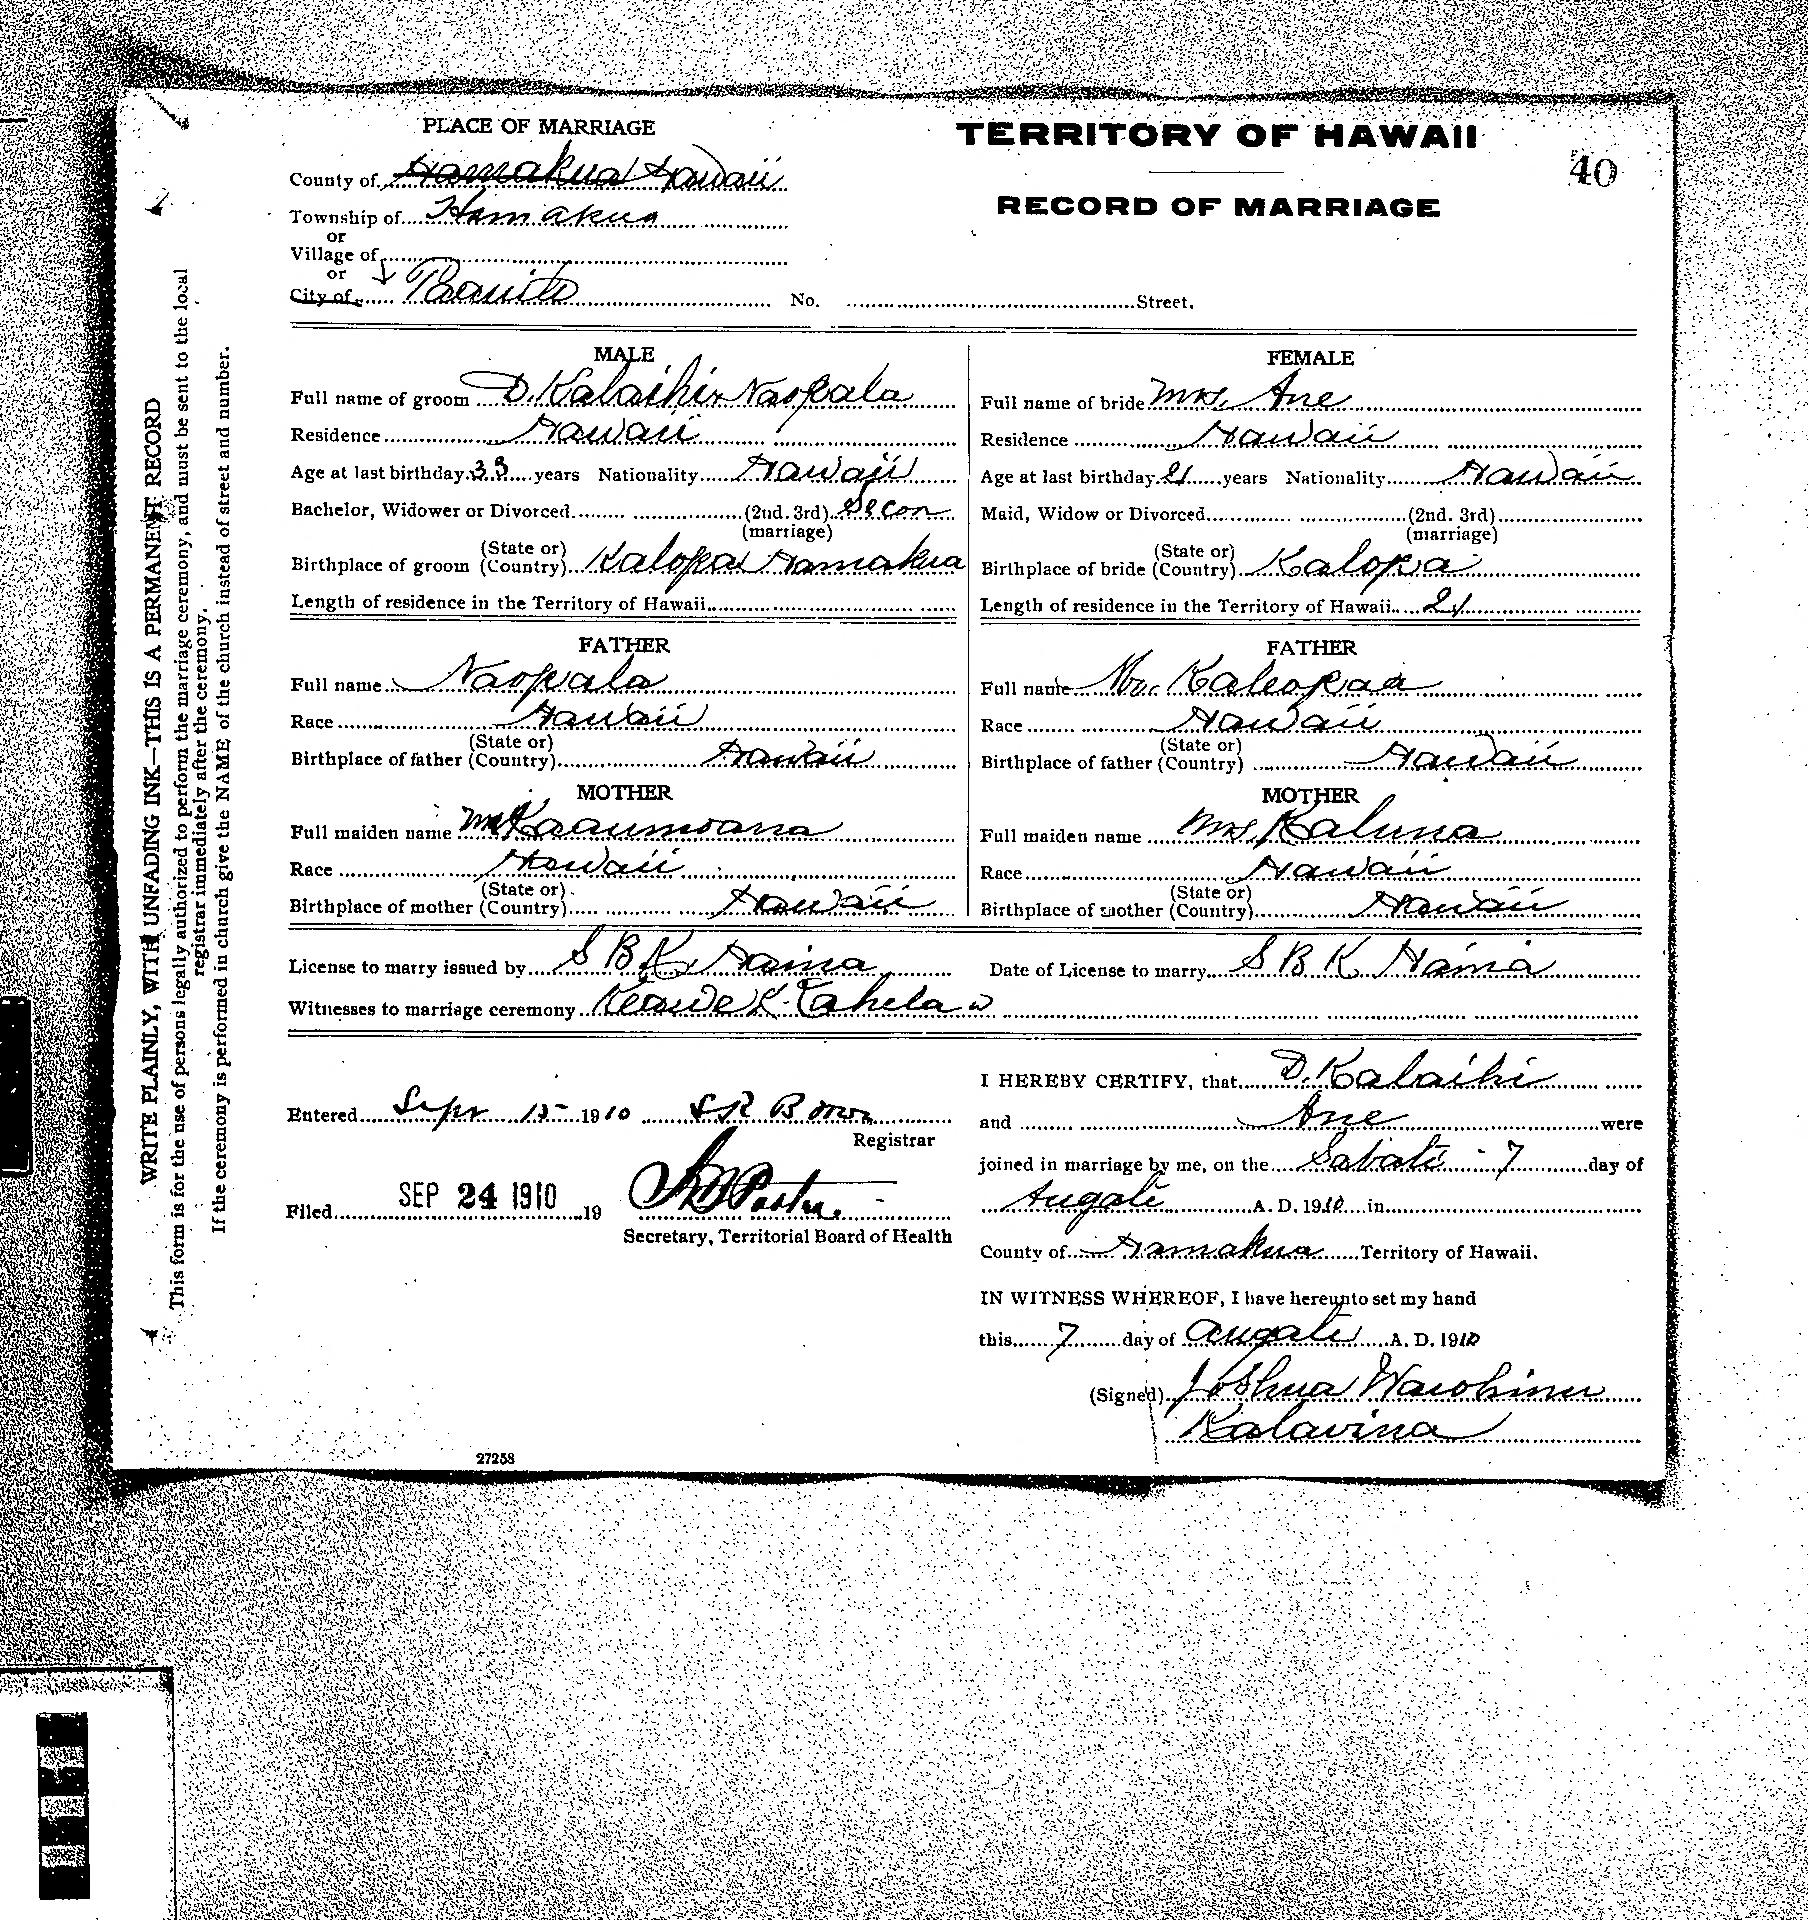 PLACE OF MARRIAGE
TERRITORY OF HAWAII
40
RECORD OF MARRIAGE
County of Hamakua Hawaii
Township of Hamakua
or
Village of
or
City of
No. Street.
MALE
Full name of groom D. Kalaihi Naopala
Residence Hawaii
Age at last birthday 33 years Nationality Hawaii
Bachelor, Widower or Divorced (2nd. 3rd) Secon
(marriage)
Birthplace of groom (State or) (Country) Kalopa Hamakua
Length of residence in the Territory of Hawaii
FATHER
Full name Naopala
Race Hawaii
Birthplace of father (State or) (Country) Hawaii
MOTHER
Full maiden name Mrs Kaaumoana
Race Hawaii
Birthplace of mother (State or) (Country) Hawaii
FEMALE
Full name of bride Mrs. Ane
Residence Hawaii
Age at last birthday 21 years Nationality Hawaii
Maid, Widow or Divorced (2nd. 3rd)
(marriage)
Birthplace of bride (State or) (Country) Kalopa
Length of residence in the Territory of Hawaii 21
FATHER
Full name Mr. Kaleopaa
Race Hawaii
Birthplace of father (State or) (Country) Hawaii
MOTHER
Full maiden name Mrs. Kaluna
Race Hawaii
Birthplace of mother (State or) (Country) Hawaii
License to marry issued by S B K Haina
Date of License to marry S B K Haina
Witnesses to marriage ceremony Keawe K.
Entered Sept 15 1910
Registrar
Filed SEP 24 1910 19
Secretary, Territorial Board of Health
I HEREBY CERTIFY, that D. Kalaihi
and Ane were
joined in marriage by me, on the Sabati - 7 day of
Augate A. D. 1910 in
County of Hamakua Territory of Hawaii.
IN WITNESS WHEREOF, I have hereunto set my hand
this 7 day of Augate A. D. 1910
(Signed) Joshua
Kalavina
27258
WRITE PLAINLY, WITH UNFADING INK—THIS IS A PERMANENT RECORD
This form is for the use of persons legally authorized to perform the marriage ceremony, and must be sent to the local
registrar immediately after the ceremony.
If the ceremony is performed in church give the NAME of the church instead of street and number.